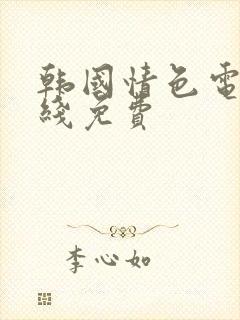 韩國情色電
綫免費
李心如